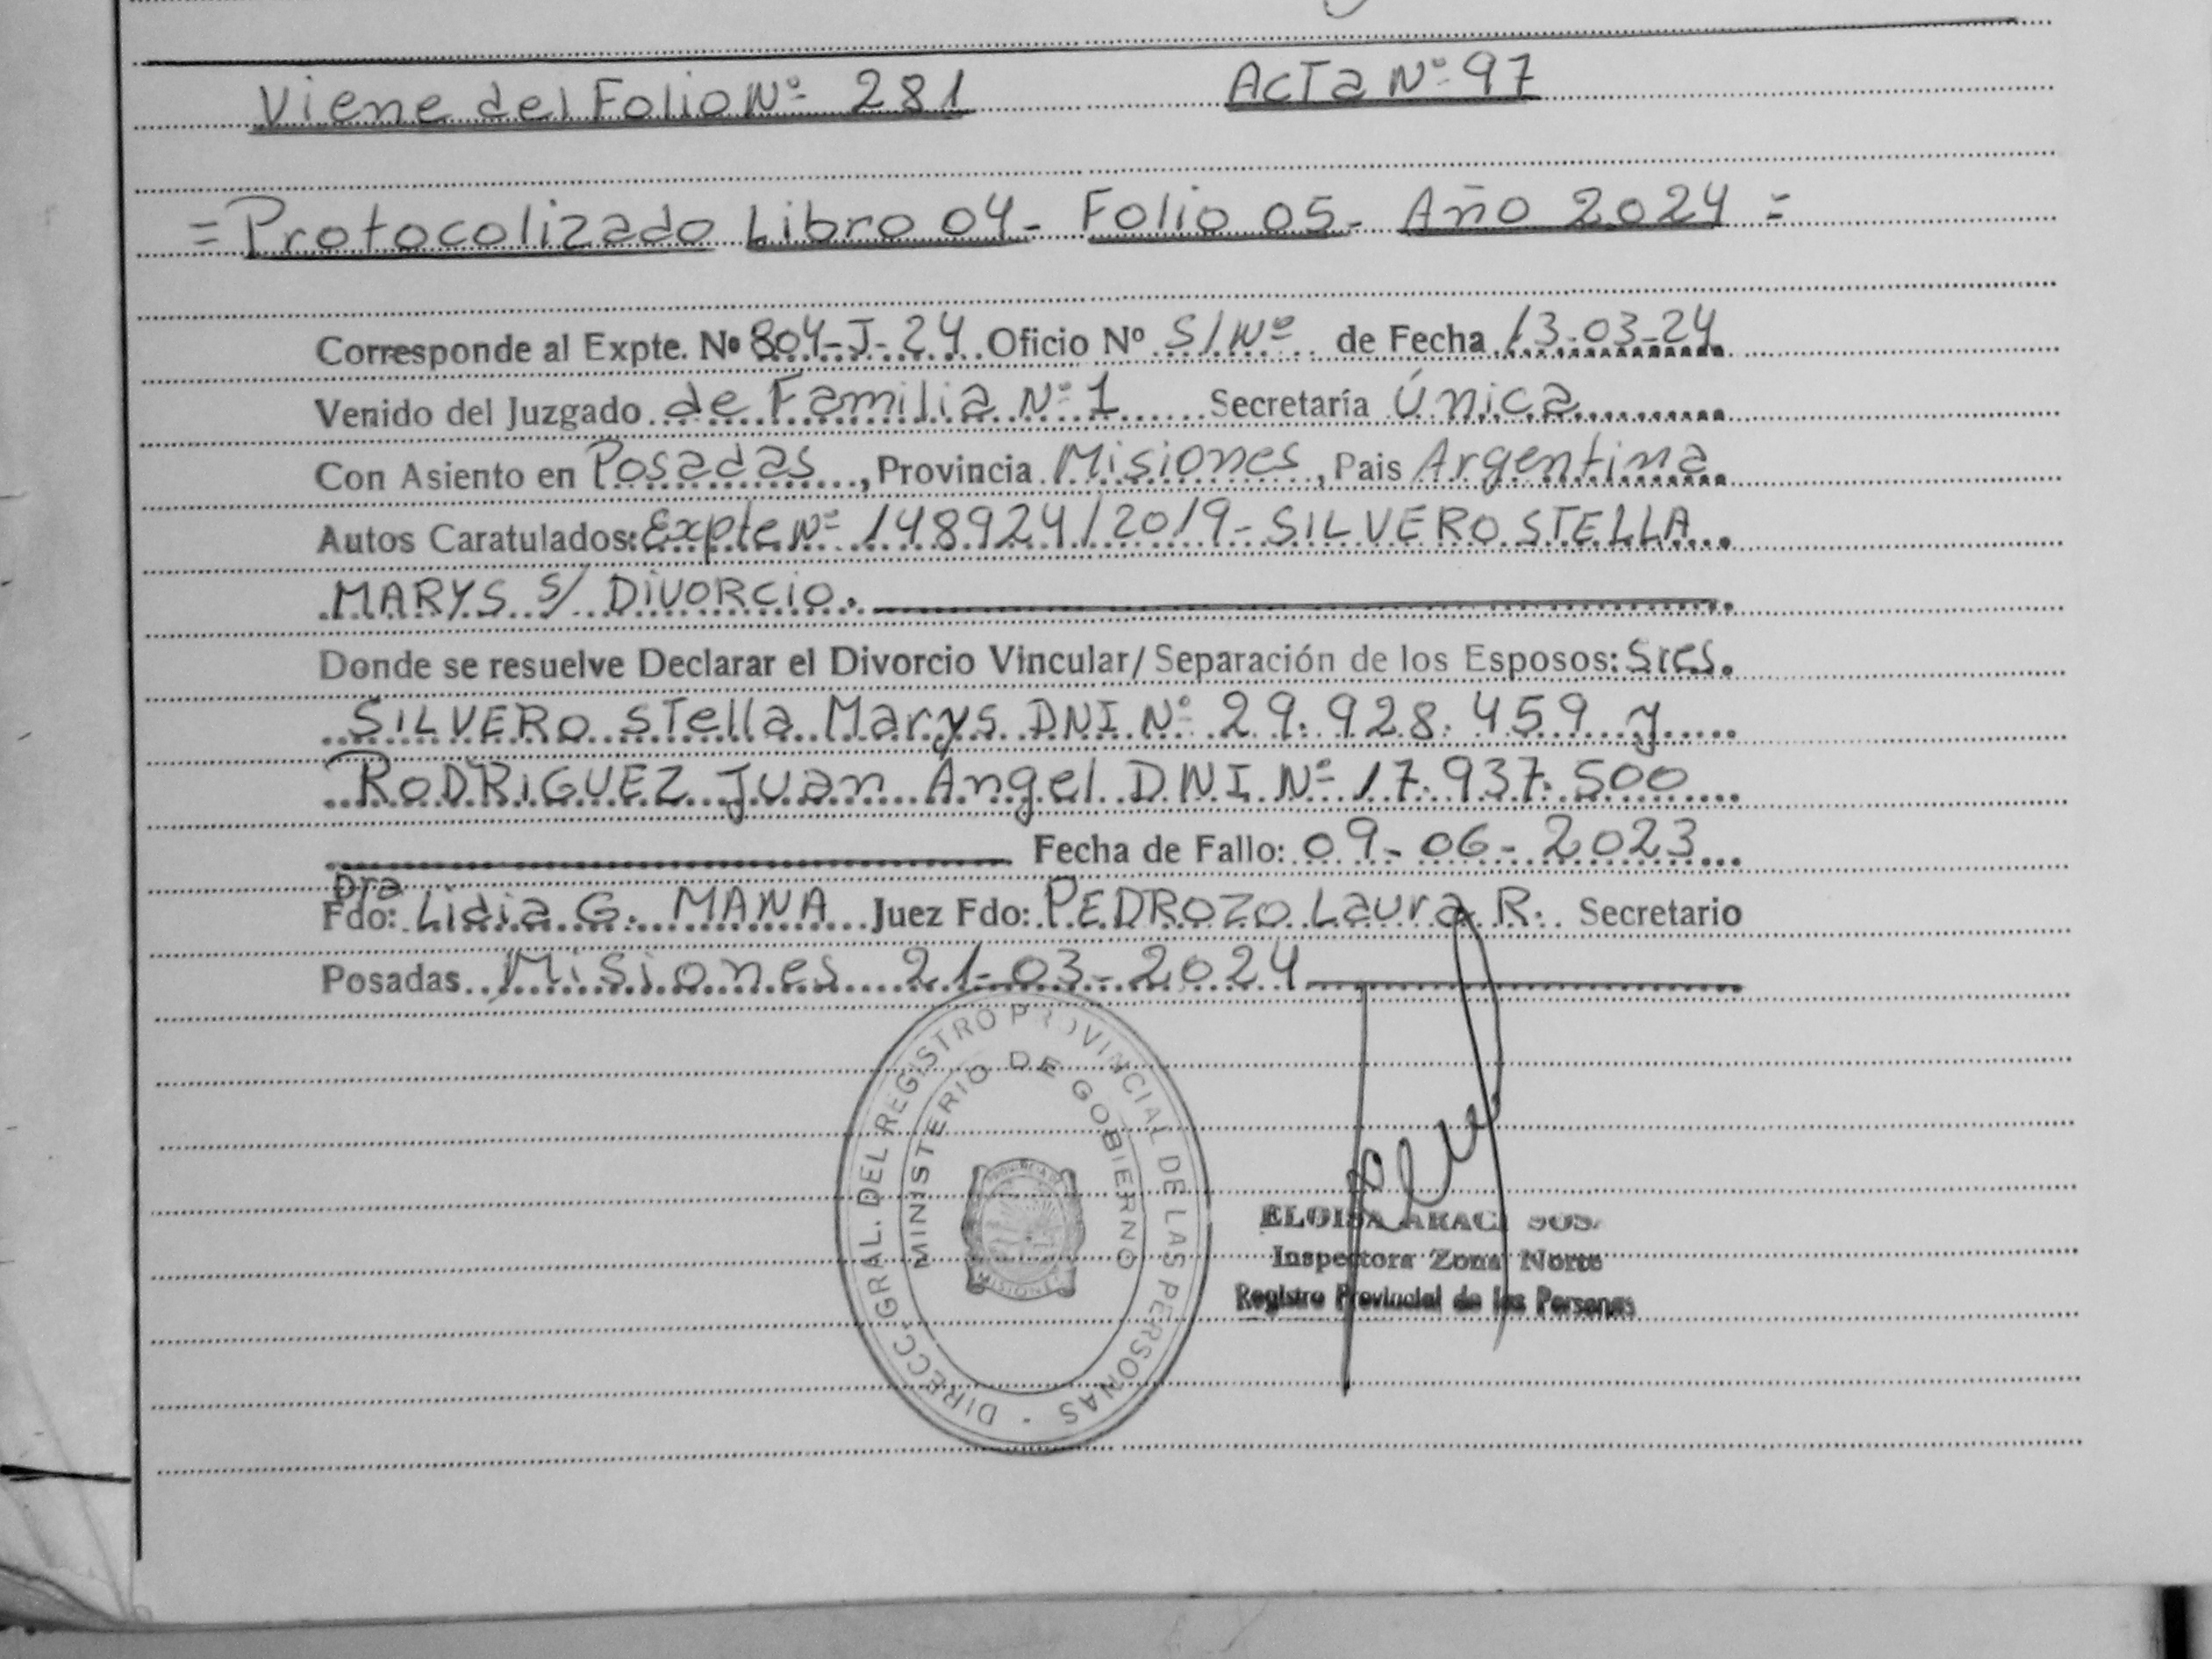 Viene del Folio Nº 281 Acta Nº 97
= Protocolizado Libro 04- Folio 05- Año 2024 =
Corresponde al Expte. Nº 804-J-24 Oficio Nº S/Nº de Fecha 13-03-24
Venido del Juzgado de Familia Nº 1 Secretaría Única
Con Asiento en Posadas, Provincia Misiones, Pais Argentina
Autos Caratulados: Expte Nº 148924/2019- SILVERO STELLA
MARYS s/ DIVORCIO.
Donde se resuelve Declarar el Divorcio Vincular/ Separación de los Esposos: Sres.
SILVERO Stella Marys DNI Nº 29.928.459 y
RODRIGUEZ Juan Angel DNI Nº 17.937.500
Fecha de Fallo: 09-06-2023
Dra
Fdo: Lidia G. MANA Juez Fdo: PEDROZO Laura R. Secretario
Posadas Misiones 21-03-2024
DIRECC. GRAL. DEL REGISTRO PROVINCIAL DE LAS PERSONAS
MINISTERIO DE GOBIERNO
MISIONES
ELOISA ARACI SOSA
Inspectora Zona Norte
Registro Provincial de las Personas